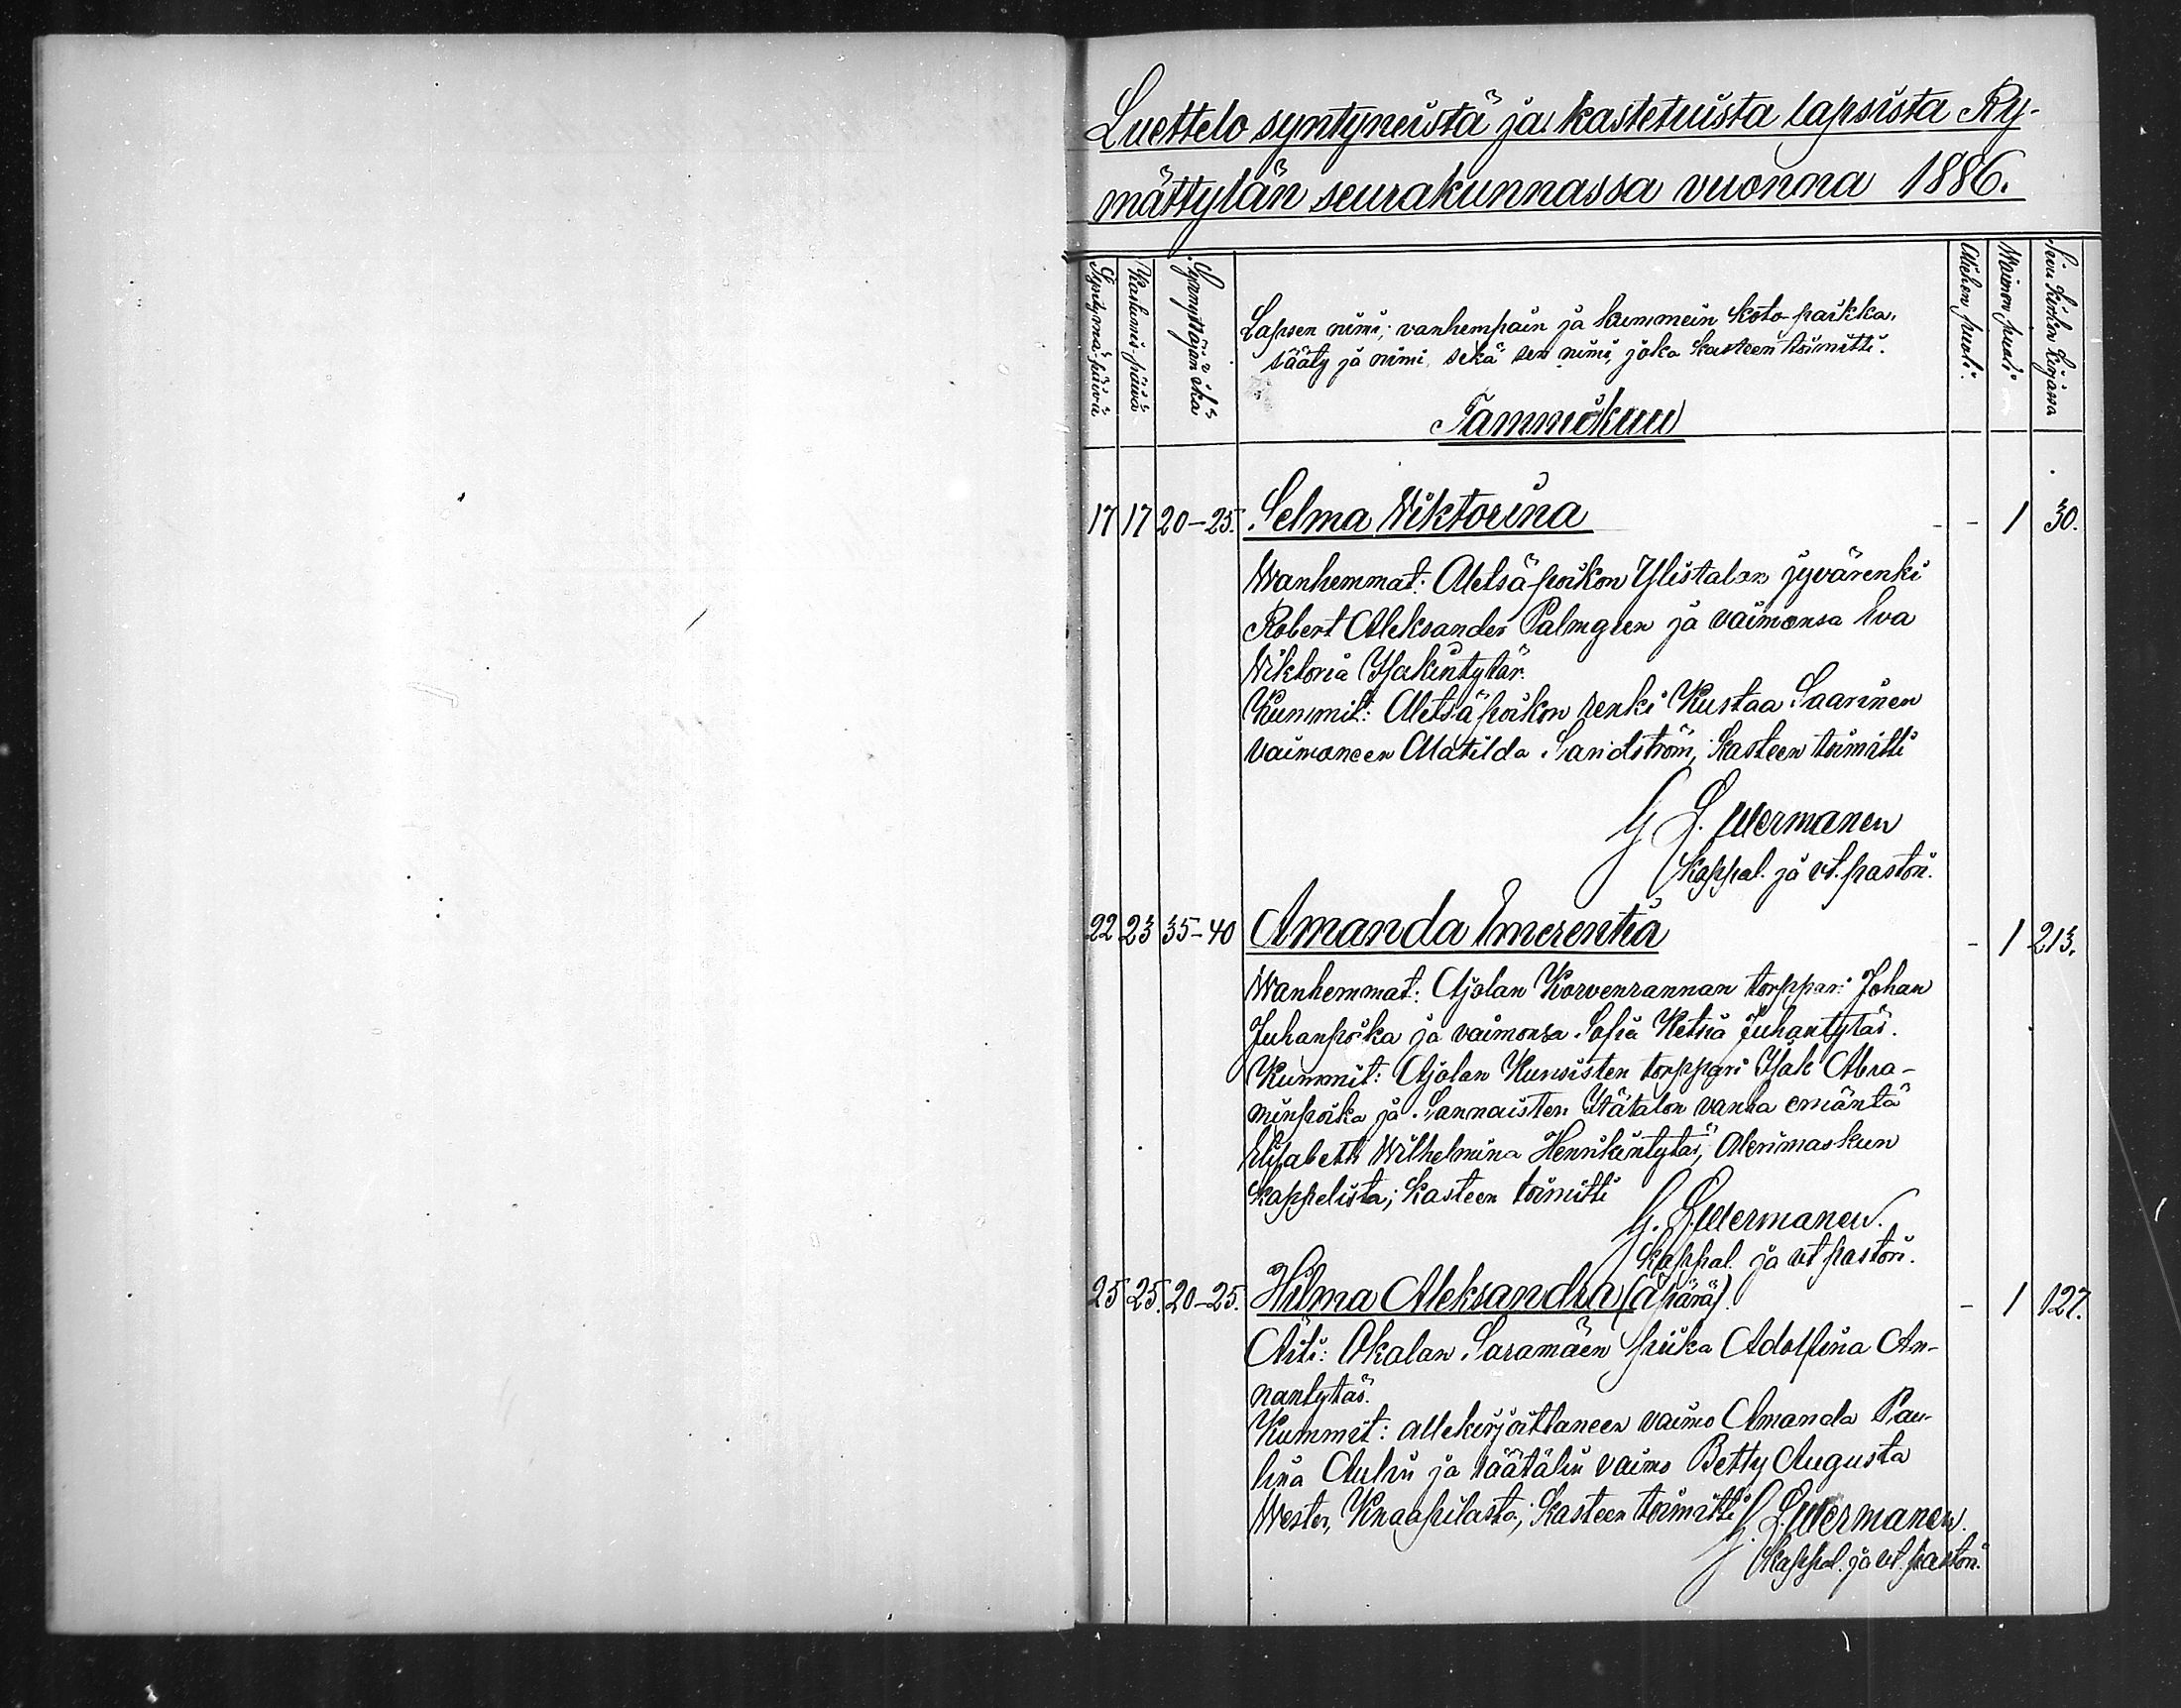 Luettelo syntyneistä ja kastetuista lapsista Ry-
mättylän seurakunnassa vuonna 1886.
Syntymä-päivä
Kastamis-päivä
Synnyttäjän ikä
Lapsen nimi; vanhempain ja kummein koto-paikka,
sääty ja nimi, sekä sen nimi, joka kasteen toimitti.
Miehen puoli.
Waimon puoli
Sivu kirkon kirjassa
Tammikuu
17 17 20-25. Selma Wiktoriina - - 1 30.
Wanhemmat: Metsäpoikon Ylistalon jyvärenki
Robert Aleksander Palmgren ja vaimonsa Eva
Wiktoria Isakintytär.
Kummit: Metsäpoikon renki Kustaa Saarinen
vaimoneen Matilda Sandström; kasteen toimitti
G L. Wermanen
Kappal. ja vt. pastori.
22 23 35-40 Amanda Emerentia - 1 213.
Wanhemmat: Ajolan Korvenrannan torppari Johan
Juhanpoika ja vaimonsa Sofia Juhantytär.
Kummit: Ajolan torppari Isak Abra-
minpoika ja Sannaisten Itätalon vanha emäntä
Elisabeth Wilhelmina Henrikintytär, Merimaskun
kappelista; kasteen toimitti
G. L. Wermanen.
Kappal. ja vt pastori.
25 25. 20-25. Hilma Aleksandra (äpärä). - 1 127.
Äiti: Saramäen piika Adolfina An-
nantytär.
Kummit: allekirjoittaneen vaimo Amanda Pau-
lina ja räätälin vaimo Betty Augusta
Wester, Knaapilasta; kasteen toimitti G. L. Wermanen.
Kappal. ja vt. pastori.